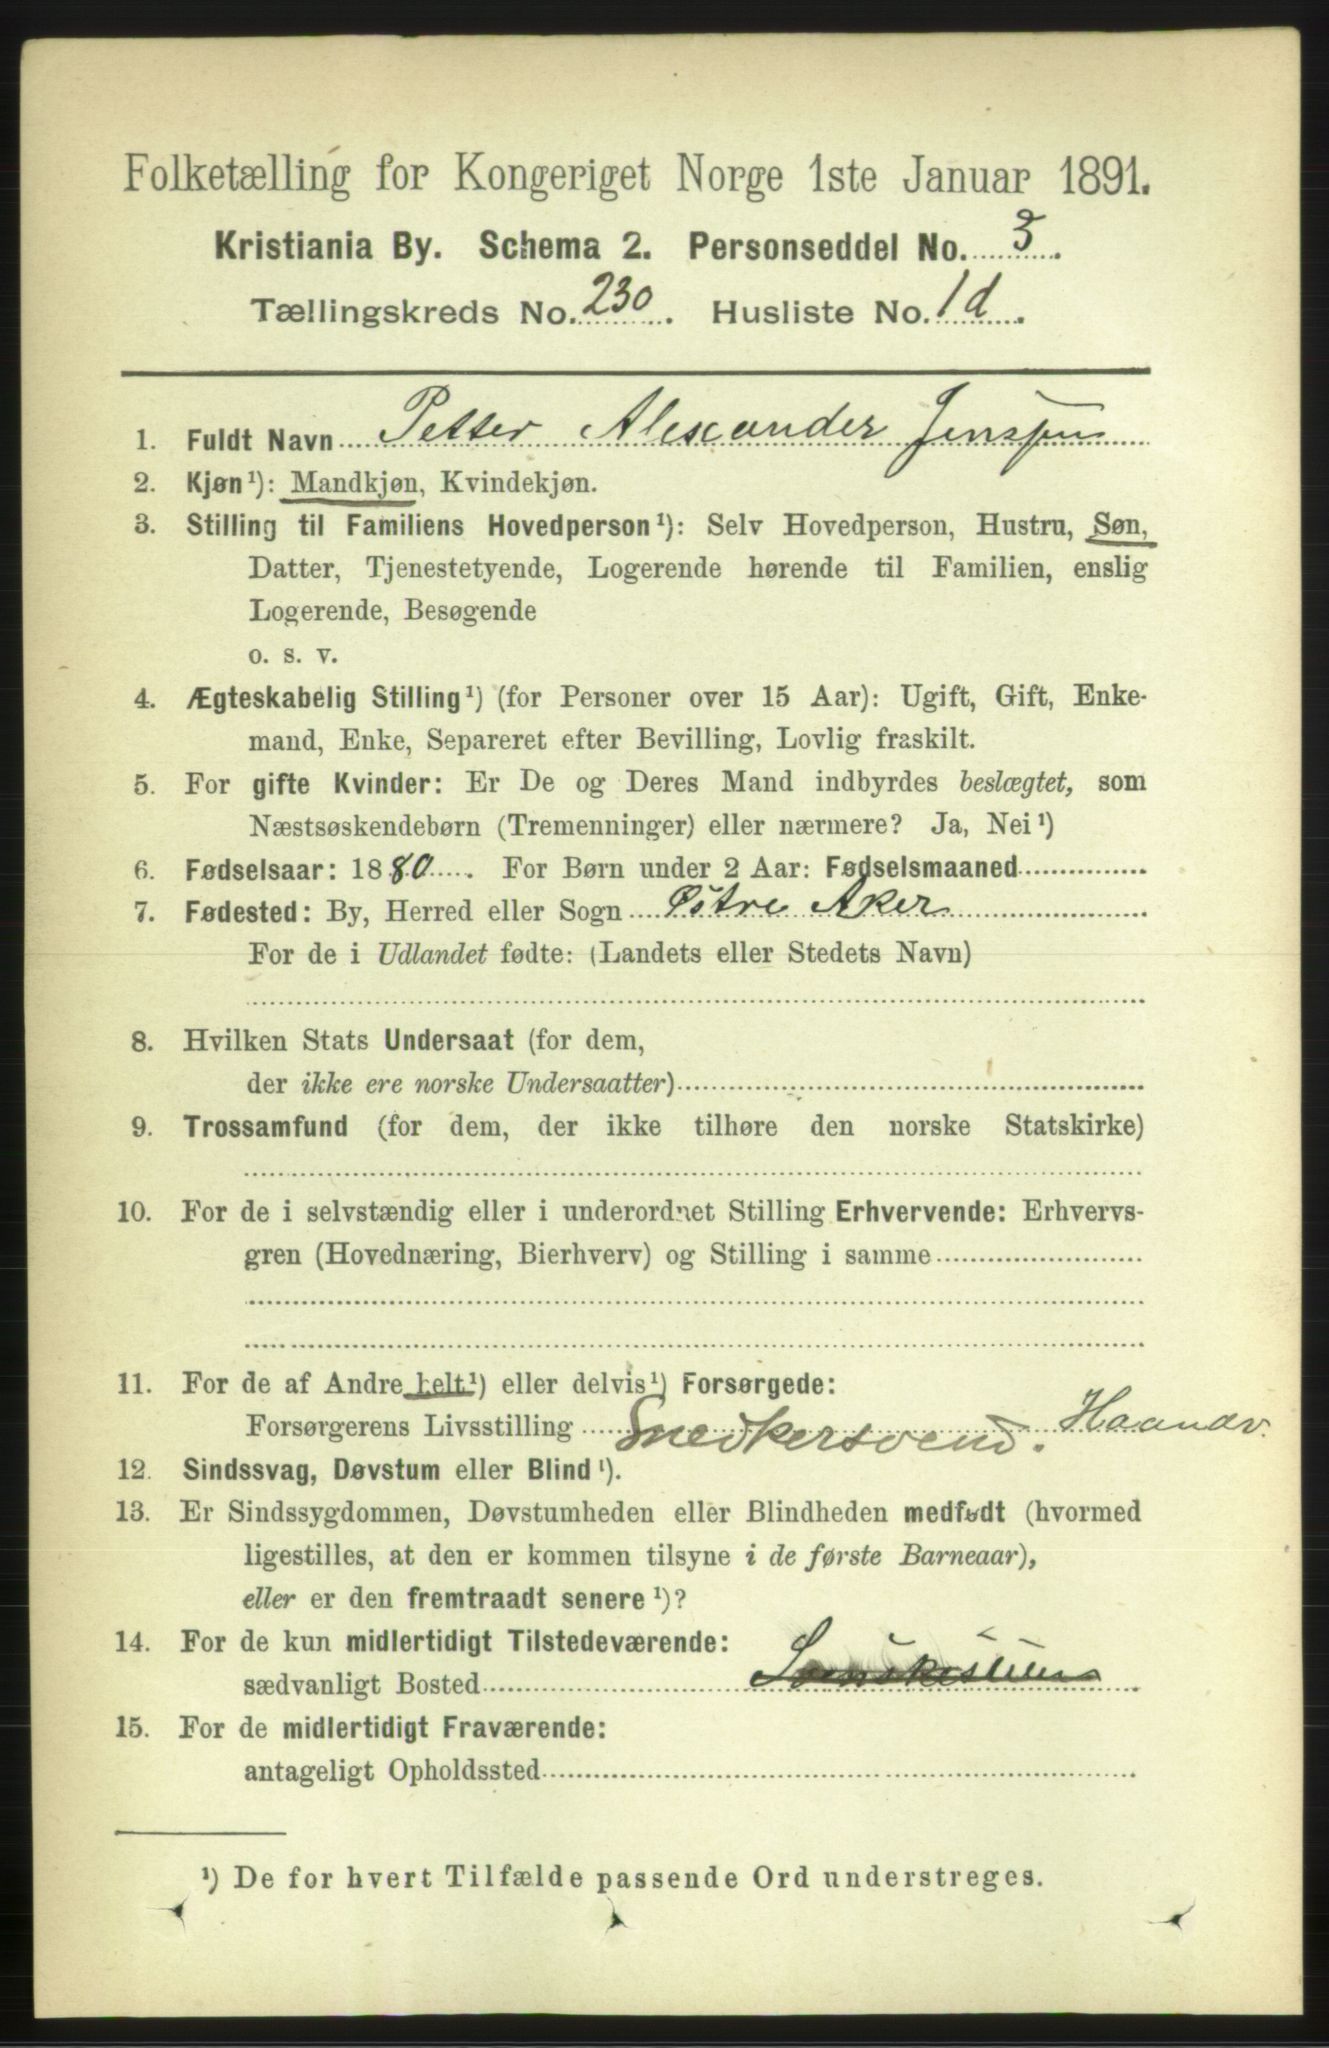 Folketælling for Kongeriget Norge 1ste Januar 1891.
Kristiania By. Schema 2. Personseddel No. 3.
Tællingskreds No. 230. Husliste No. 1d.
1. Fuldt Navn Petter Alexander Jenssen
2. Kjøn¹): Mandkjøn, Kvindekjøn.
3. Stilling til Familiens Hovedperson¹): Selv Hovedperson, Hustru, Søn,
Datter, Tjenestetyende, Logerende hørende til Familien, enslig
Logerende, Besøgende
o. s. v.
4. Ægteskabelig Stilling¹) (for Personer over 15 Aar): Ugift, Gift, Enke-
mand, Enke, Separeret efter Bevilling, Lovlig fraskilt.
5. For gifte Kvinder: Er De og Deres Mand indbyrdes beslægtet, som
Næstsøskendebørn (Tremenninger) eller nærmere? Ja, Nei¹)
6. Fødselsaar: 1880. For Børn under 2 Aar: Fødselsmaaned
7. Fødested: By, Herred eller Sogn Østre Aker
For de i Udlandet fødte: (Landets eller Stedets Navn)
8. Hvilken Stats Undersaat (for dem,
der ikke ere norske Undersaatter)
9. Trossamfund (for dem, der ikke tilhøre den norske Statskirke)
10. For de i selvstændig eller i underordnet Stilling Erhvervende: Erhvervs-
gren (Hovednæring, Bierhverv) og Stilling i samme
11. For de af Andre helt¹) eller delvis¹) Forsørgede:
Forsørgerens Livsstilling Snedkersvend. Haandv.
12. Sindssvag, Døvstum eller Blind¹).
13. Er Sindssygdommen, Døvstumheden eller Blindheden medfødt (hvormed
ligestilles, at den er kommen tilsyne i de første Barneaar),
eller er den fremtraadt senere¹)?
14. For de kun midlertidigt Tilstedeværende:
sædvanligt Bosted
15. For de midlertidigt Fraværende:
antageligt Opholdssted
¹) De for hvert Tilfælde passende Ord understreges.